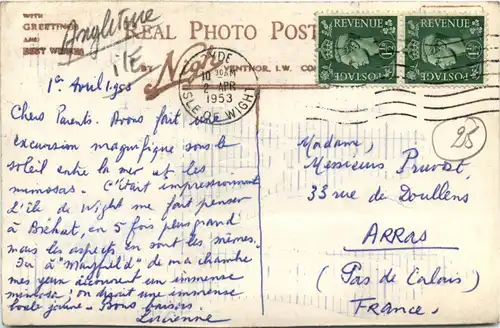 WITH
GREETINGS
AND
BEST WISHES
Angleterre
I/E
REAL PHOTO POST
BY Nigh VENTNOR, I.W. CO
REVENUE
POSTAGE
REVENUE
POSTAGE
RYDE
10 30AM
2 APR
1953
ISLE OF WIGHT
25
1er Avril 1953
Chers Parents. Avons fait une
excursion magnifique sous le
soleil entre la mer et les
mimosas. C'était impressionnant
L'île de Wight me fait penser
à Bréhat, en 5 fois plus grand
mais les aspects en sont les mêmes.
Ici à "Mayfield" de ma chambre
mes yeux découvrent un immense
mimosa; on dirait une immense
boule jaune. Bons baisers.
Lucienne
Madame,
Messieurs Pruvost,
33 rue de Doullens
ARRAS
(Pas de Calais)
France.